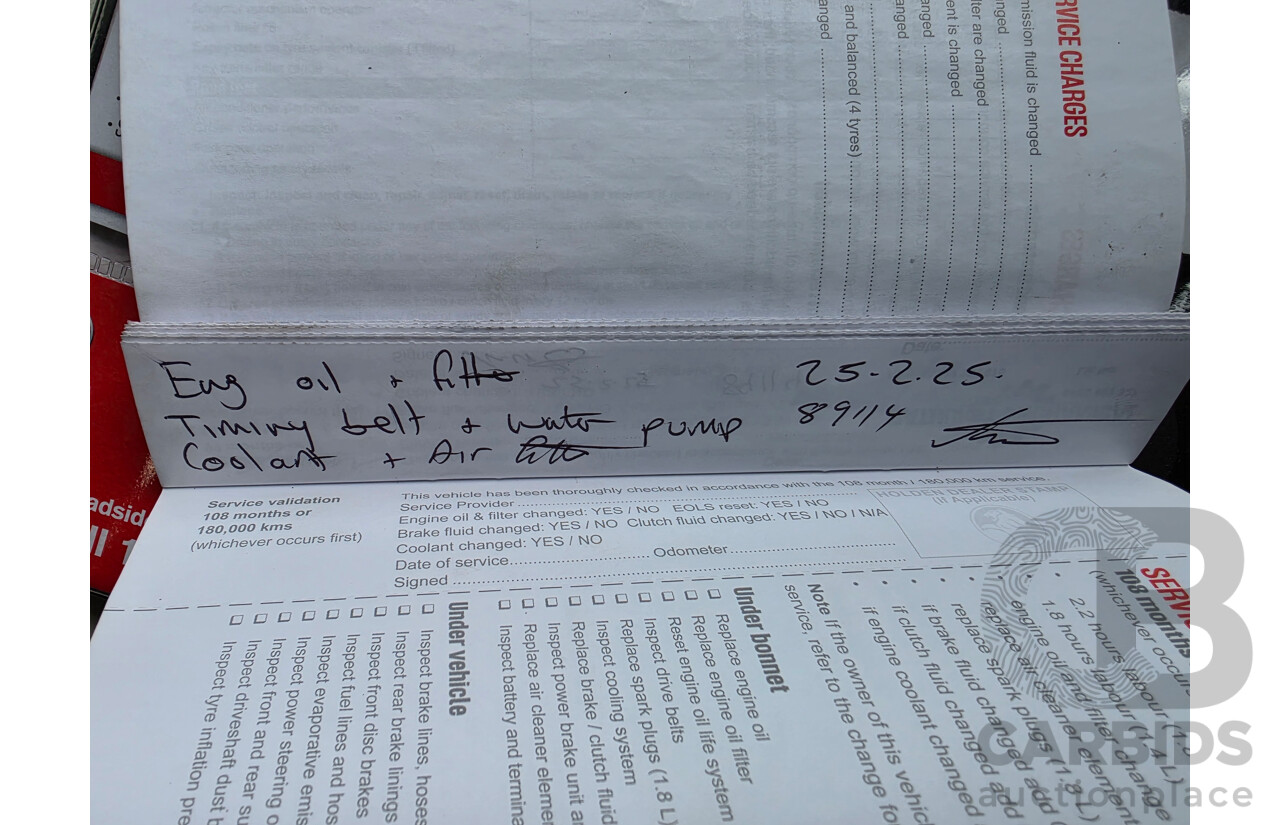 RVICE CHARGES
mission fluid is changed
nged
lter are changed
ent is changed
anged
anged
and balanced (4 tyres)
anged
Eng oil + filter 25-2.25.
Timing belt + water pump 89114
Coolant + Air filter
Service validation
108 months or
180,000 kms
(whichever occurs first)
This vehicle has been thoroughly checked in accordance with the 108 month / 180,000 km service.
Service Provider
Engine oil & filter changed: YES / NO EOLS reset: YES / NO
Brake fluid changed: YES / NO Clutch fluid changed: YES / NO / N/A
Coolant changed: YES / NO
Date of service Odometer
Signed
HOLDEN DEALER STAMP
adsid
SERVIC
108 months
(whichever occurs
2.2 hours labour
1.8 hours labour
engine oil and filter change
replace air cleaner element
replace spark plugs (1.8 L)
if brake fluid changed add
if clutch fluid changed add
if engine coolant changed
Note If the owner of this vehic
service, refer to the change fo
Under bonnet
Replace engine oil
Replace engine oil filter
Reset engine oil life system
Inspect drive belts
Replace spark plugs (1.8 L)
Inspect cooling system
Replace brake / clutch fluid
Inspect power brake unit a
Replace air cleaner elemen
Inspect battery and termina
Under vehicle
Inspect brake lines, hoses
Inspect rear brake linings
Inspect front disc brakes
Inspect fuel lines and hos
Inspect evaporative emis
Inspect power steering o
Inspect front and rear su
Inspect driveshaft dust b
Inspect tyre inflation pre
CARBIDS
auctionplace